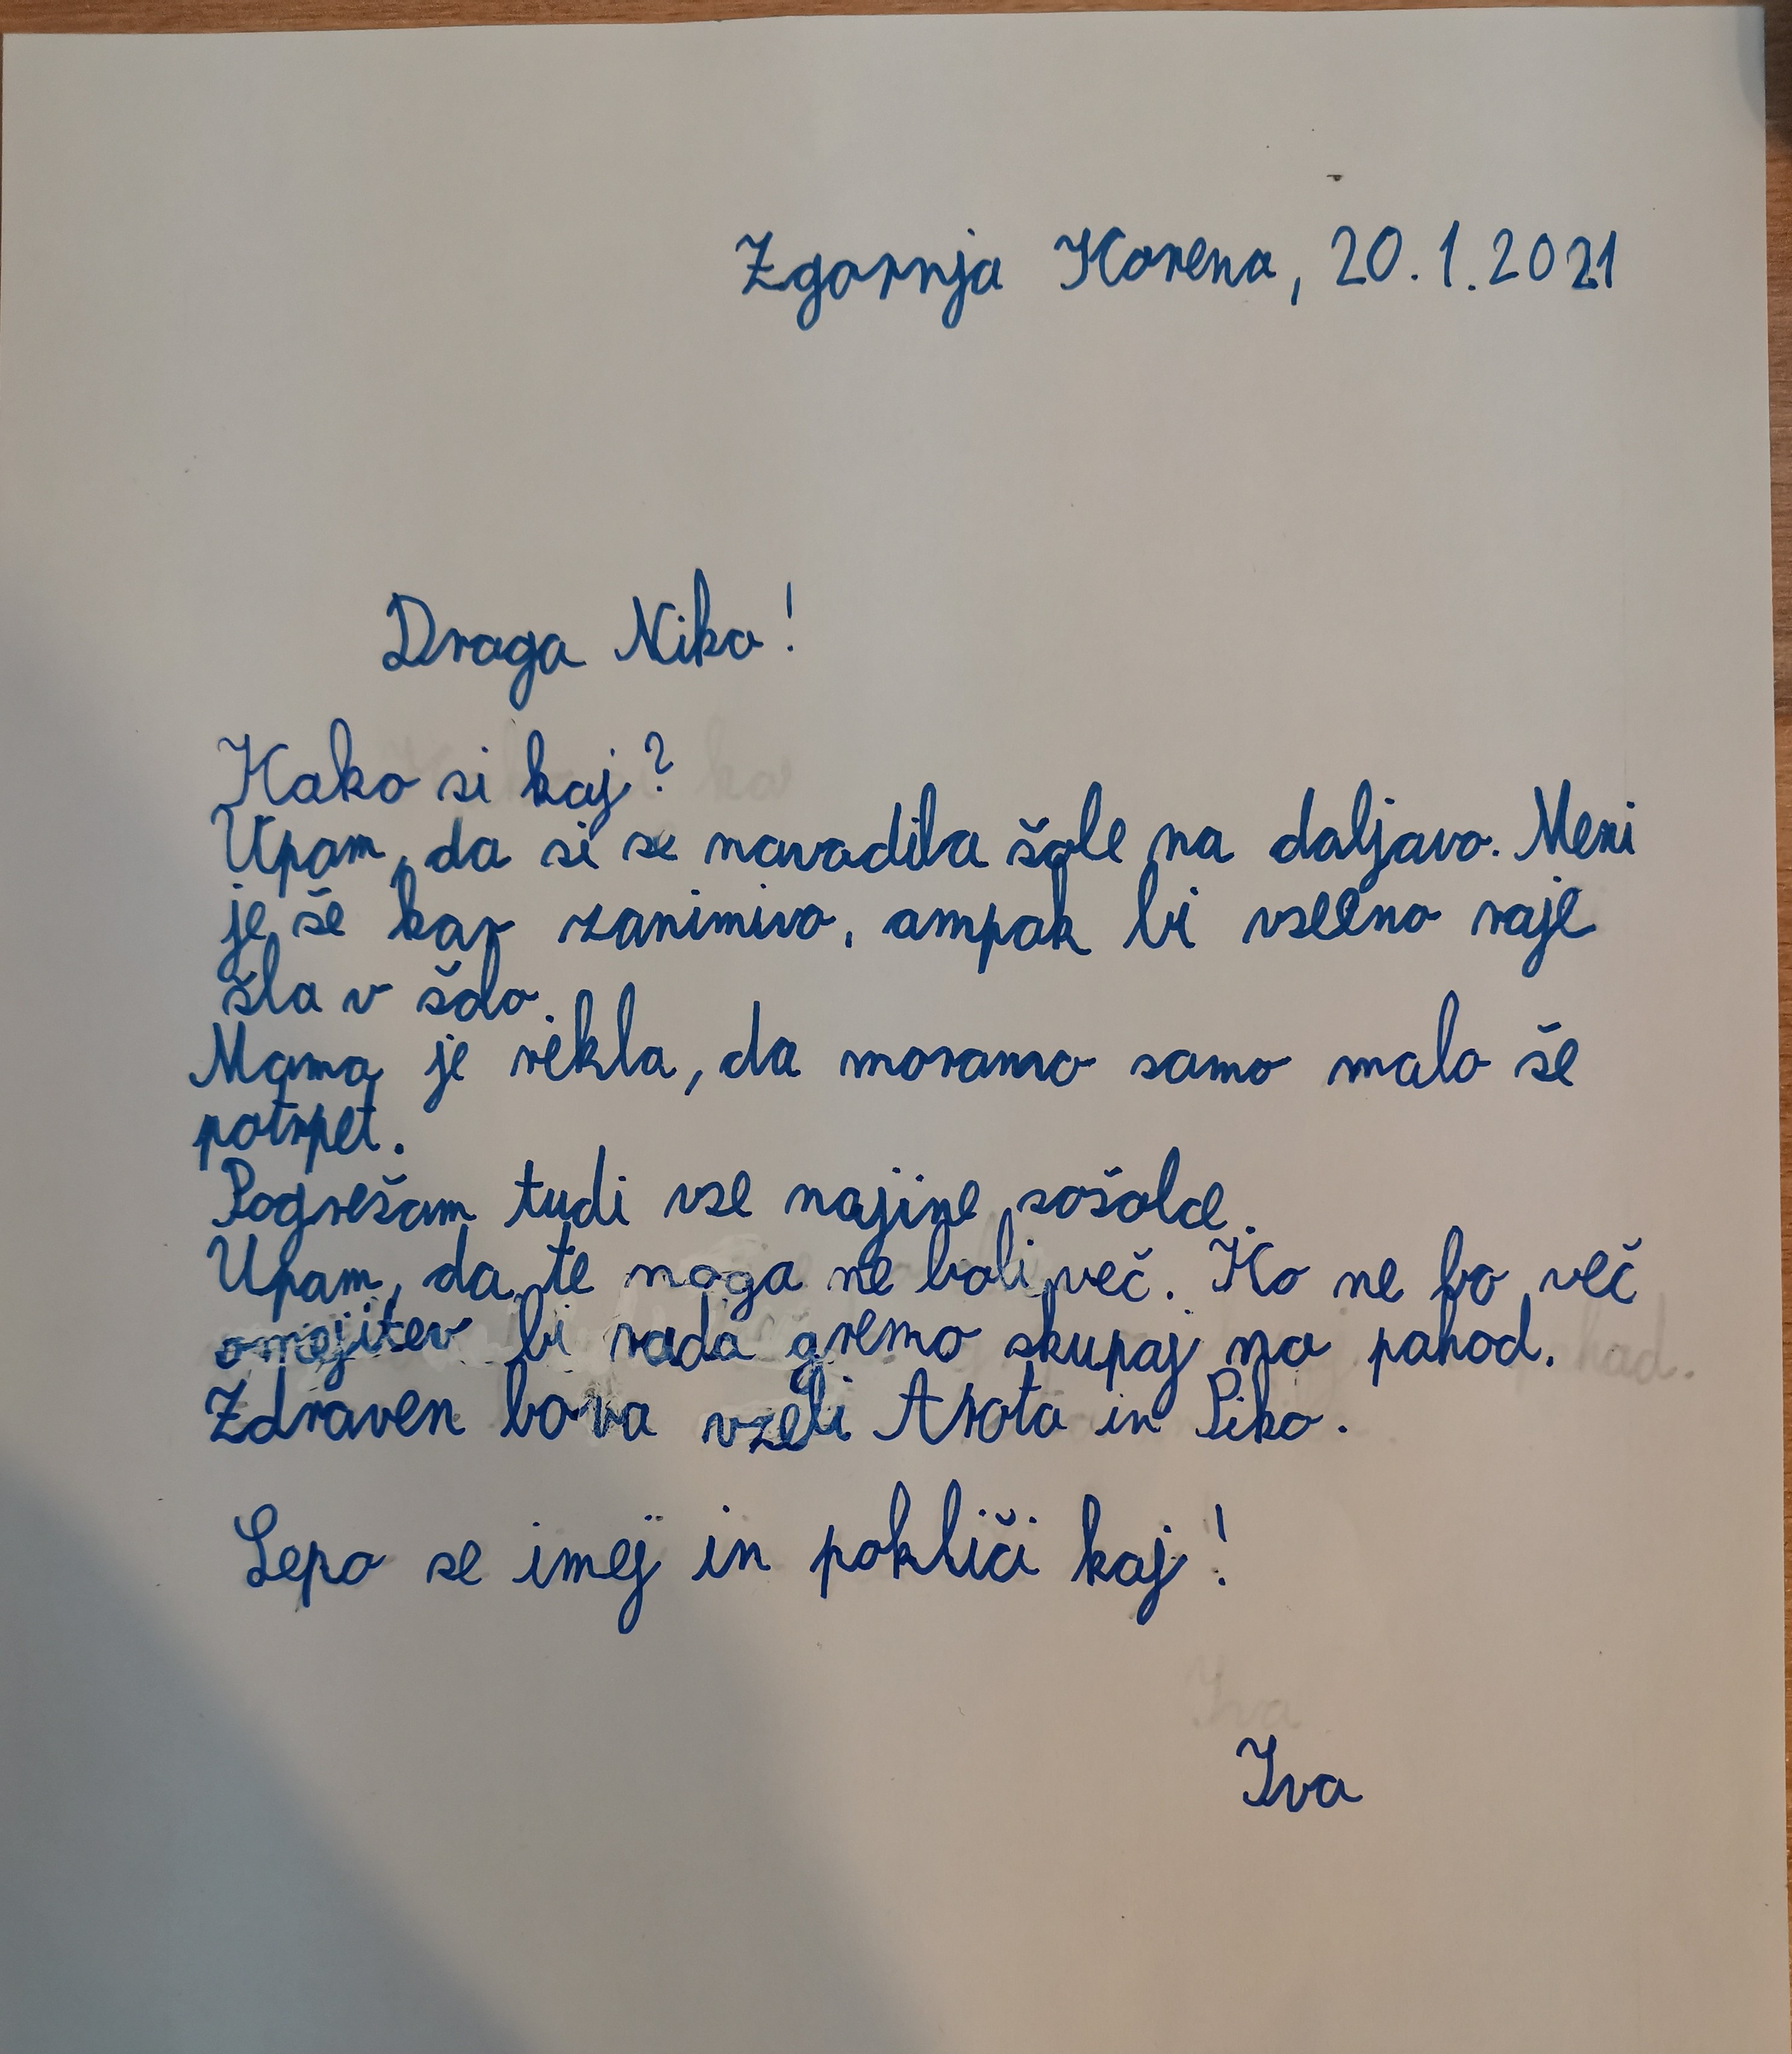 Zgornja Korena, 20.1.2021
Draga Nika!
Kako si kaj?
Upam, da si se navadila šole na daljavo. Meni
je še kar zanimivo, ampak bi vseeno raje
šla v šolo.
Mama je rekla, da moramo samo malo še
potrpet.
Pogrešam tudi vse najine sošolce.
Upam, da te noga ne boli več. Ko ne bo več
omejitev bi rada gremo skupaj na pohod.
Zdraven bova vzeli Arota in Piko.
Lepo se imej in pokliči kaj!
Iva